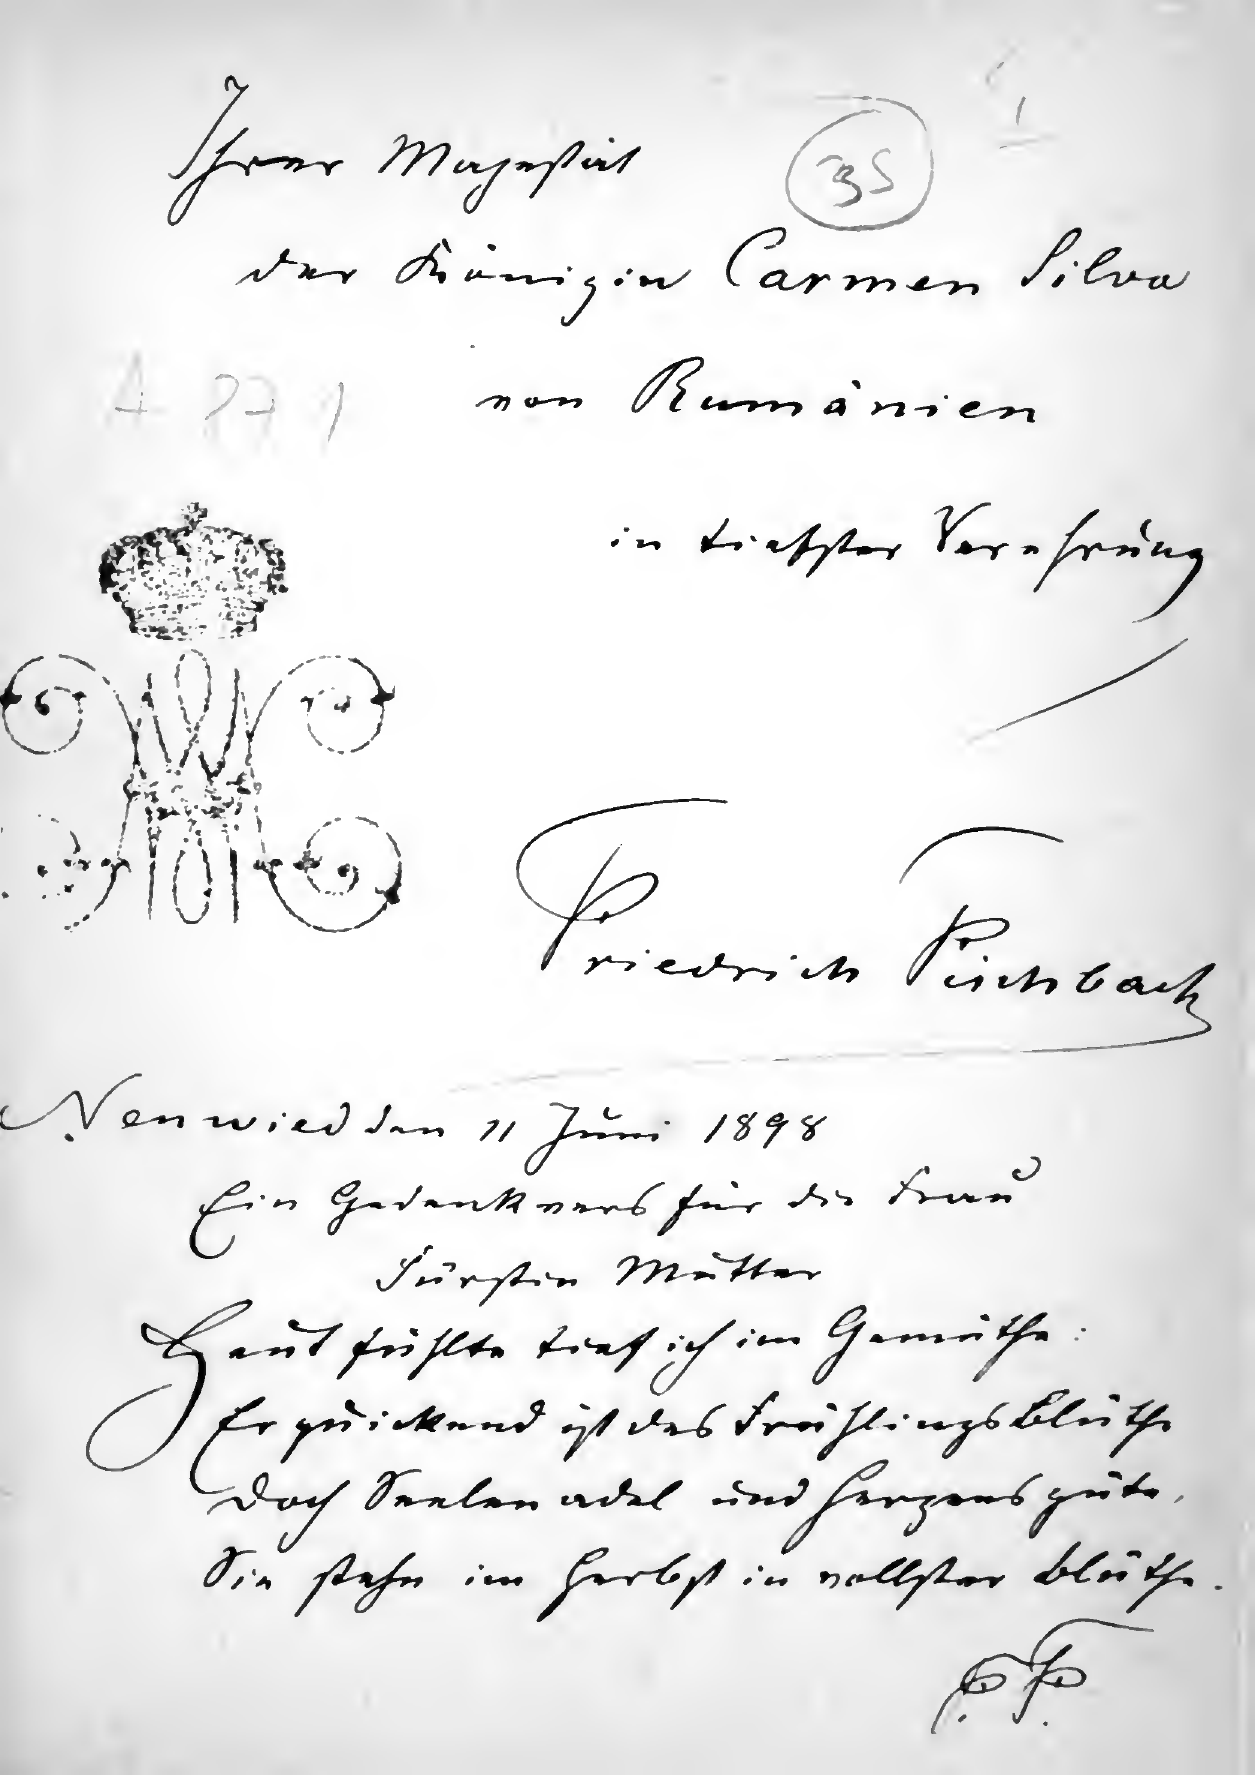 Ihrer Majestät
35
der Königin Carmen Silva
von Rumänien
in tiefster Verehrung
Friedrich Fischbach
Neuwied den 11 Juni 1898
Ein Gedenkvers für die Frau
Fürstin Mutter
Heut fühlte tief ich im Gemüthe:
Erquickend ist des Frühlings Blüthe
Doch Seelenadel und Herzensgüte,
Sie stehn im Herbst in vollster Blüthe.
F. F.